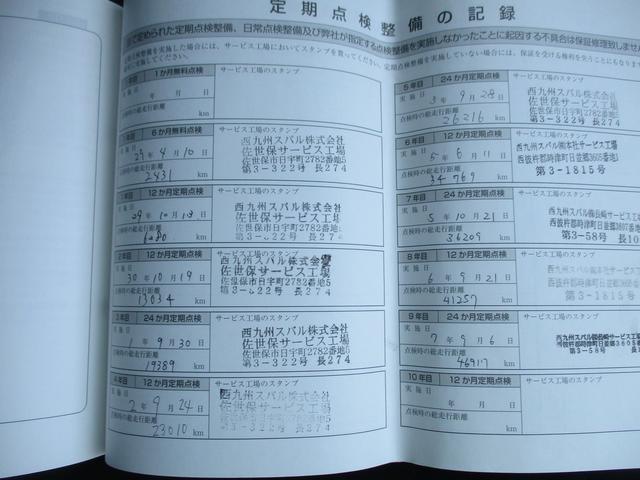 定期点検整備の記録
定められた定期点検整備、日常点検整備及び弊社が指定する点検整備を実施しなかったことに起因する不具合は保証修理致しません
1か月無料点検
サービス工場のスタンプ
年 月 日
km
6か月無料点検
サービス工場のスタンプ
実施日
29年4月10日
点検時の総走行距離
2431 km
西九州スバル株式会社
佐世保サービス工場
佐世保市日宇町2782番地5
第3-322号 長274
1年目 12か月定期点検
サービス工場のスタンプ
実施日
29年10月13日
点検時の総走行距離
km
西九州スバル株式会社
佐世保サービス工場
佐世保市日宇町2782番地
第3-322号 長27
2年目 12か月定期点検
サービス工場のスタンプ
実施日
30年10月19日
点検時の総走行距離
13034 km
西九州スバル株式会
佐世保サービス工場
佐世保市日宇町2782番地5
第3-322号 長274
3年目 24か月定期点検
サービス工場のスタンプ
実施日
1年9月30日
点検時の総走行距離
19389 km
西九州スバル株式会社
佐世保サービス工場
佐世保市日宇町2782番地5
第3-322号 長274
12か月定期点検
サービス工場のスタンプ
実施日
2年9月24日
点検時の総走行距離
23010 km
西九州スバル株式会社
佐世保サービス工場
5年目 24か月定期点検
サービス工場のスタンプ
実施日
3年9月28日
点検時の総走行距離
26216 km
西九州スバル株式会社
佐世保サービス工場
佐世保市日宇町2782番地5
第3-322号 長274
6年目 12か月定期点検
サービス工場のスタンプ
実施日
5年6月11日
点検時の総走行距離
34769 km
西彼杵郡時津町日並郷3605番地1
第3-1815号
7年目 24か月定期点検
サービス工場のスタンプ
実施日
5年10月21日
点検時の総走行距離
36209 km
西九州スバル㈱長崎サービス工場
第3-58号
8年目 12か月定期点検
サービス工場のスタンプ
実施日
6年9月21日
点検時の総走行距離
41257 km
第3-1815号
9年目 24か月定期点検
サービス工場のスタンプ
実施日
7年9月6日
点検時の総走行距離
46917 km
西九州スバル㈱長崎サービス工場
第3-58号
10年目 12か月定期点検
サービス工場のスタンプ
実施日
年 月 日
点検時の総走行距離
km